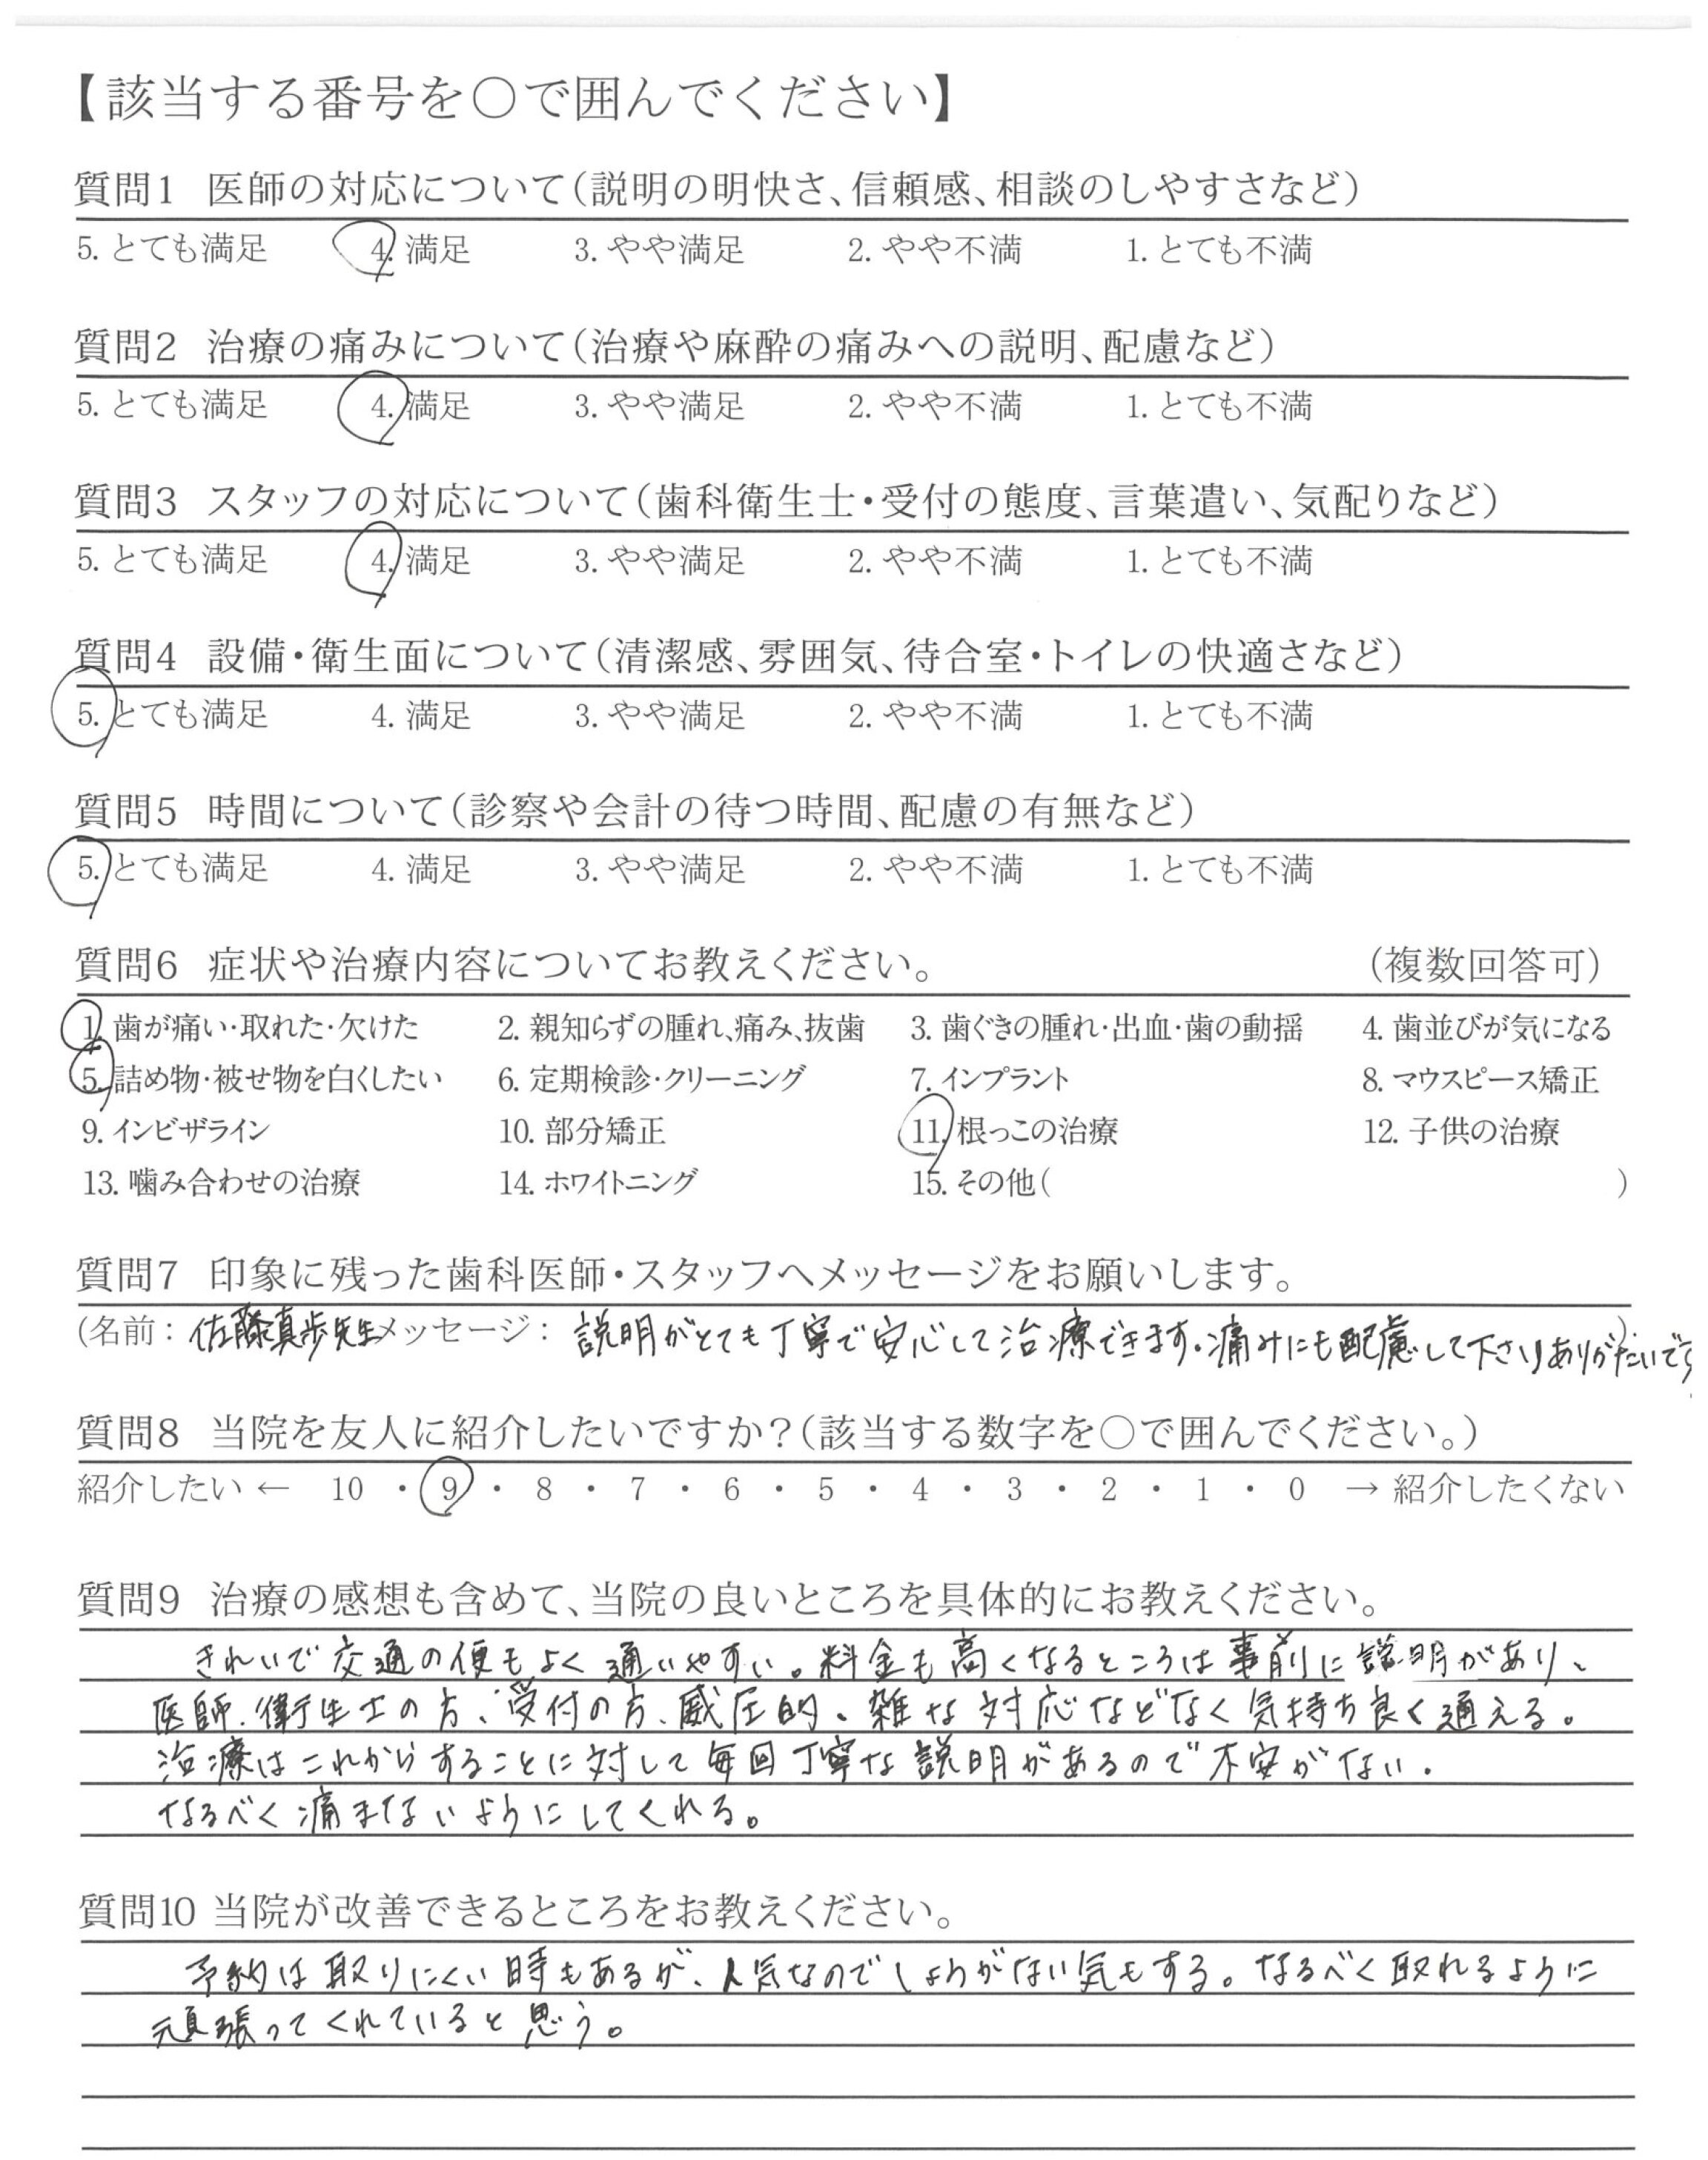 【該当する番号を○で囲んでください】
質問1 医師の対応について（説明の明快さ、信頼感、相談のしやすさなど）
5. とても満足 4. 満足 3. やや満足 2. やや不満 1. とても不満
質問2 治療の痛みについて（治療や麻酔の痛みへの説明、配慮など）
5. とても満足 4. 満足 3. やや満足 2. やや不満 1. とても不満
質問3 スタッフの対応について（歯科衛生士・受付の態度、言葉遣い、気配りなど）
5. とても満足 4. 満足 3. やや満足 2. やや不満 1. とても不満
質問4 設備・衛生面について（清潔感、雰囲気、待合室・トイレの快適さなど）
5. とても満足 4. 満足 3. やや満足 2. やや不満 1. とても不満
質問5 時間について（診察や会計の待つ時間、配慮の有無など）
5. とても満足 4. 満足 3. やや満足 2. やや不満 1. とても不満
質問6 症状や治療内容についてお教えください。 （複数回答可）
1. 歯が痛い・取れた・欠けた 2. 親知らずの腫れ、痛み、抜歯 3. 歯ぐきの腫れ・出血・歯の動揺 4. 歯並びが気になる
5. 詰め物・被せ物を白くしたい 6. 定期検診・クリーニング 7. インプラント 8. マウスピース矯正
9. インビザライン 10. 部分矯正 11. 根っこの治療 12. 子供の治療
13. 噛み合わせの治療 14. ホワイトニング 15. その他（ ）
質問7 印象に残った歯科医師・スタッフへメッセージをお願いします。
（名前：佐藤真歩先生 メッセージ：説明がとても丁寧で安心して治療できます。痛みにも配慮して下さりありがたいです）
質問8 当院を友人に紹介したいですか？（該当する数字を○で囲んでください。）
紹介したい ← 10 ・ 9 ・ 8 ・ 7 ・ 6 ・ 5 ・ 4 ・ 3 ・ 2 ・ 1 ・ 0 → 紹介したくない
質問9 治療の感想も含めて、当院の良いところを具体的にお教えください。
きれいで交通の便もよく通いやすい。料金も高くなるところは事前に説明があり、
医師、衛生士の方、受付の方、威圧的、雑な対応などなく気持ち良く通える。
治療はこれからすることに対して毎回丁寧な説明があるので不安がない。
なるべく痛まないようにしてくれる。
質問10 当院が改善できるところをお教えください。
予約は取りにくい時もあるが、人気なのでしょうがない気もする。なるべく取れるように
頑張ってくれていると思う。